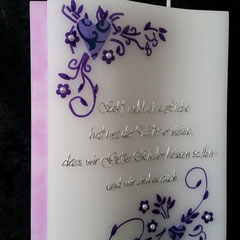 Seht, welch eine Liebe
hat uns der Vater erwiesen,
dass wir Gottes Kinder heissen sollen -
und wir sind es auch.